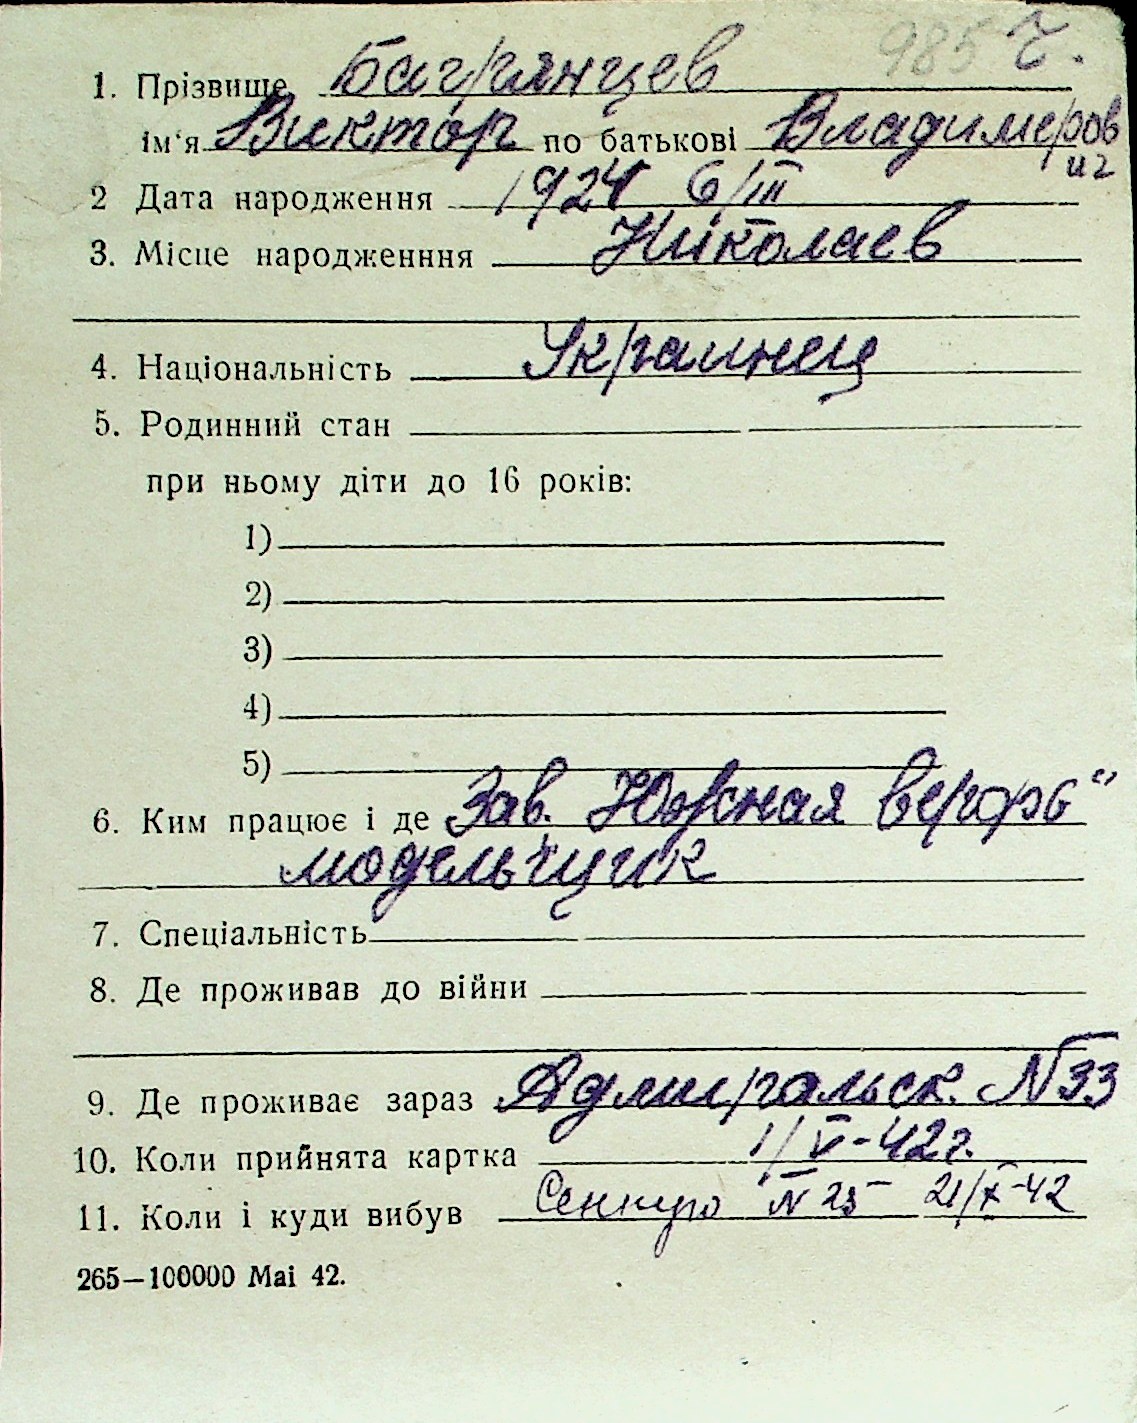 985 ч.
1. Прізвище Багрянцев
ім'я Виктор по батькові Владимеров
ич
2 Дата народження 1924 6/III
3. Місце народженння Николаев
4. Національність Украинец
5. Родинний стан
при ньому діти до 16 років:
1)
2)
3)
4)
5)
6. Ким працює і де Зав. Южная верфь"
модельчщик
7. Спеціальність
8. Де проживав до війни
9. Де проживає зараз Адмиральск. N 33
10. Коли прийнята картка 1/V-42г.
11. Коли і куди вибув Сенную N 25 21/X-42
265—100000 Mai 42.